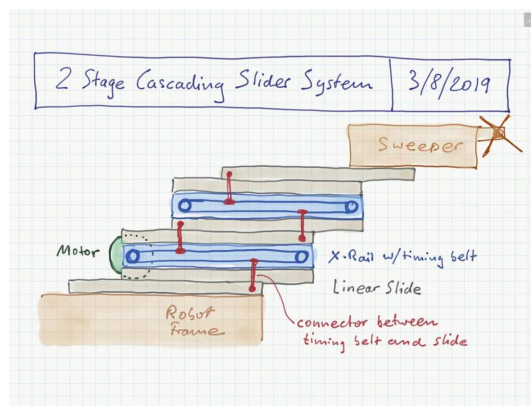 2 Stage Cascading Slider System
3/8/2019
Sweeper
Motor
X-Rail w/timing belt
Linear Slide
Robot
Frame
connector between
timing belt and slide